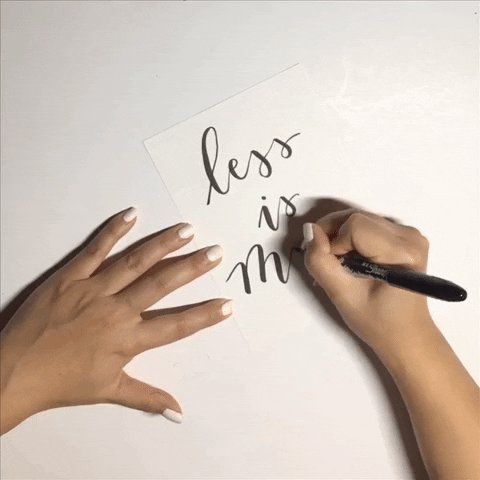 less
is
m